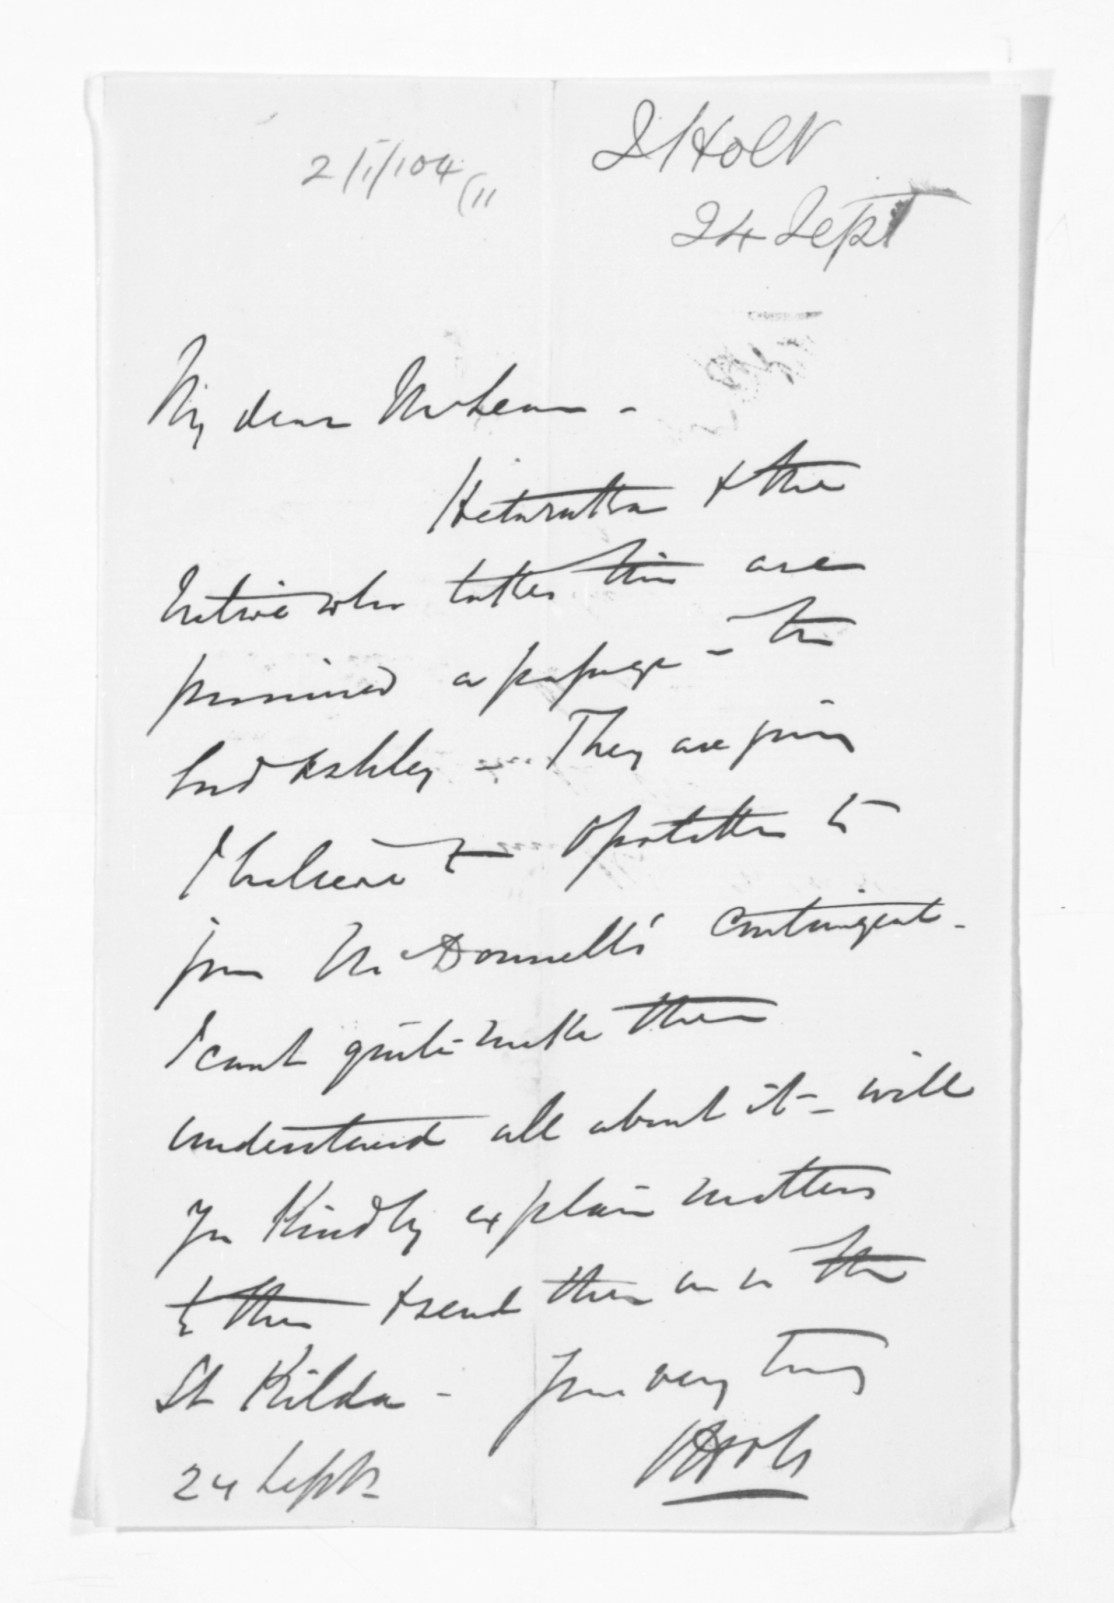 2/1/104/11
J Holt
24 Sept
My dear McLean -
& the
Native who takes him are
promised a passage - the
Lord Ashley - They are going
to Opotiki to
join McDonnell's contingent -
I cant quite make them
understand all about it - will
you kindly explain matters
to them & send them on in the
St Kilda - Yours very truly
Holt
24 Sept